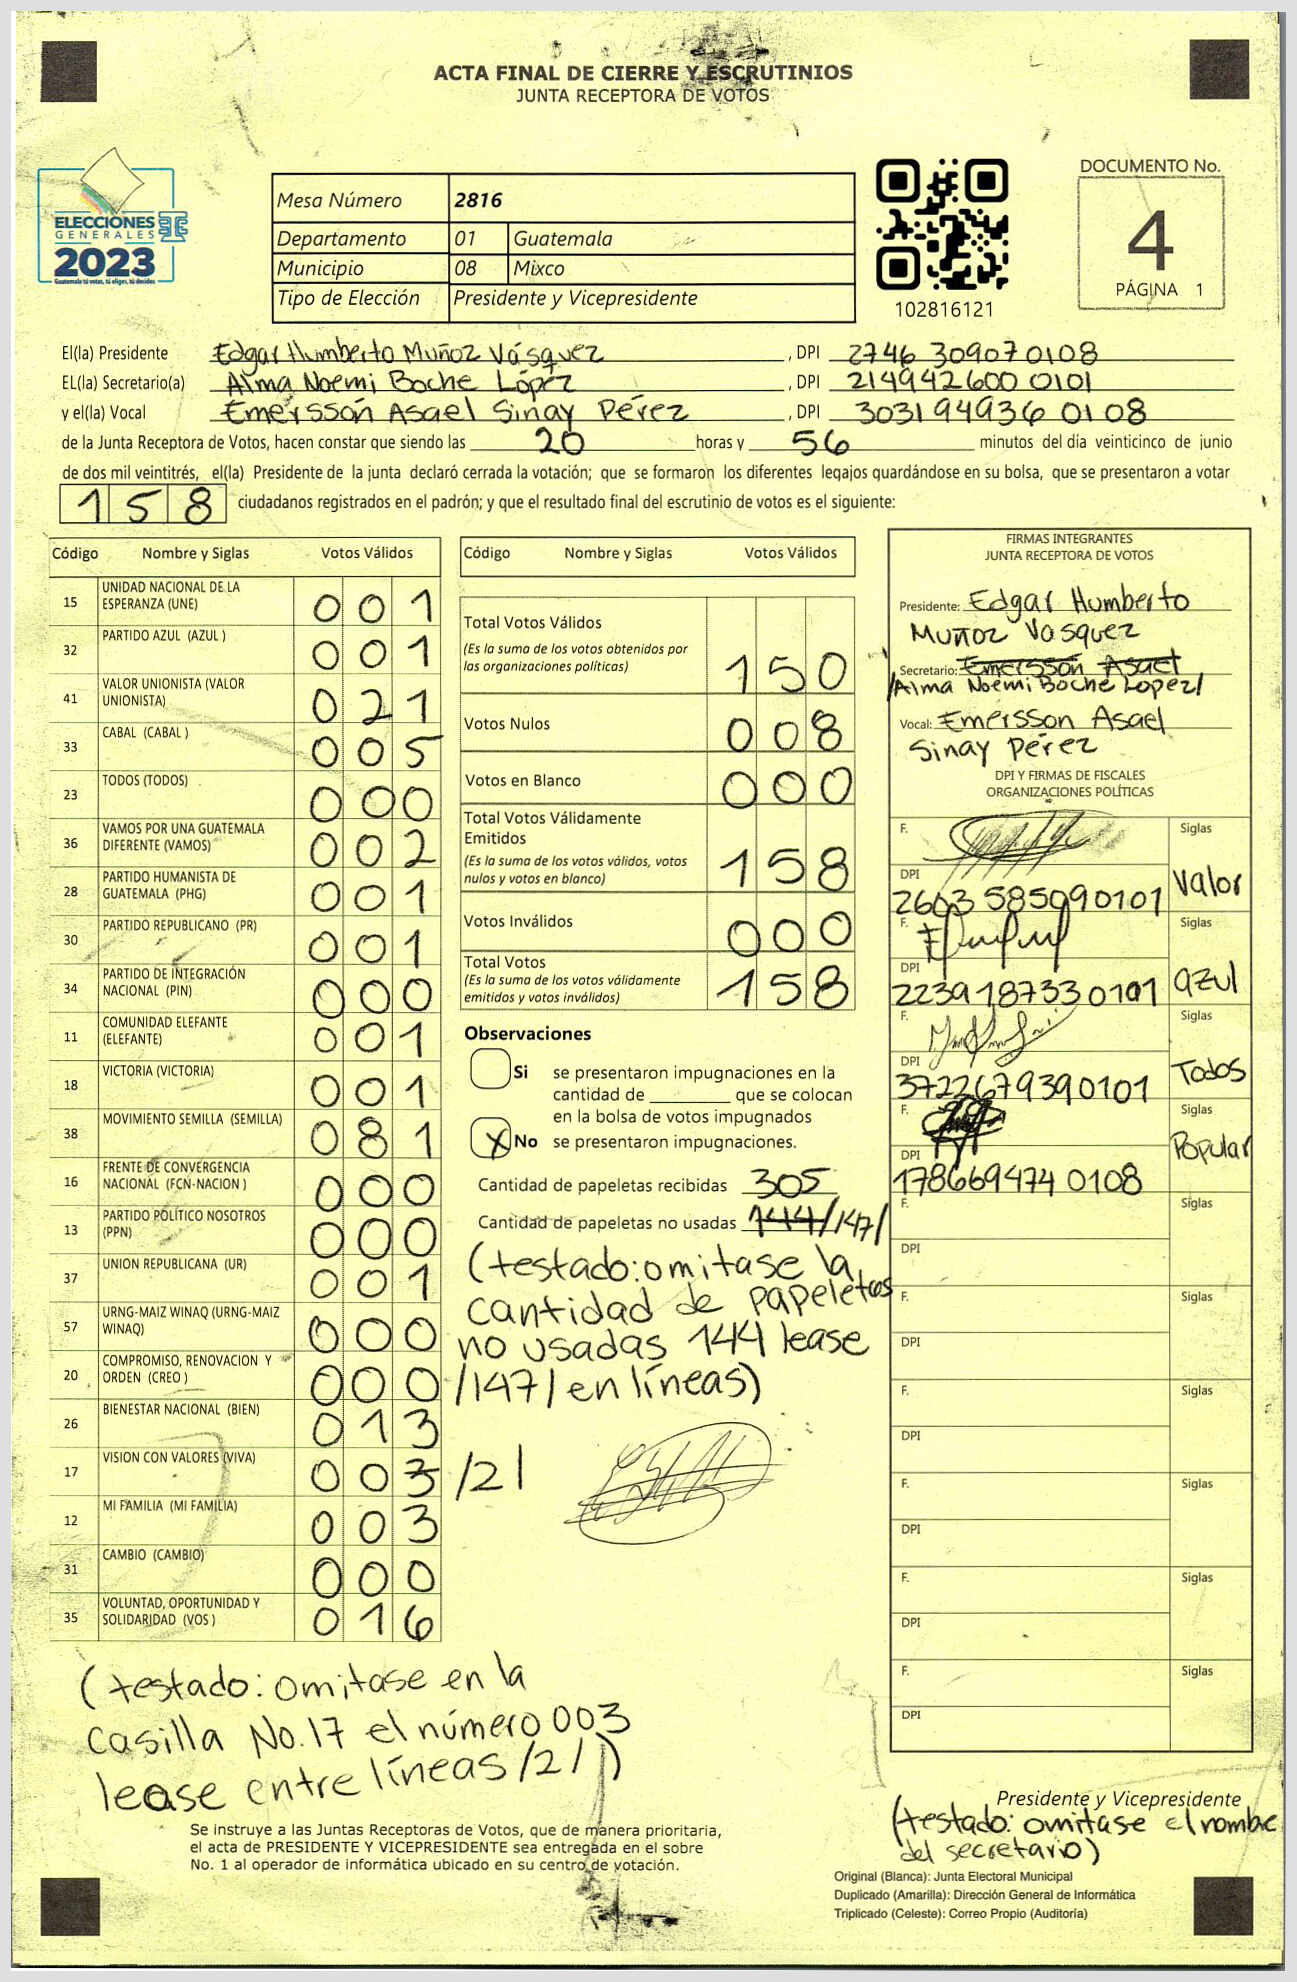 ACTA FINAL DE CIERRE Y ESCRUTINIOS
JUNTA RECEPTORA DE VOTOS
ELECCIONES
GENERALES
2023
Guatemala tú votas, tú eliges, tú decides
Mesa Número 2816
Departamento 01 Guatemala
Municipio 08 Mixco
Tipo de Elección Presidente y Vicepresidente
102816121
DOCUMENTO No.
4
PÁGINA 1
El(la) Presidente Edgar Humberto Muñoz Vásquez , DPI 2746 30907 0108
EL(la) Secretario(a) Alma Noemi Boche López , DPI 214942600 0101
y el(la) Vocal Emerssón Asael Sinay Pérez , DPI 303194936 0108
de la Junta Receptora de Votos, hacen constar que siendo las 20 horas y 56 minutos del día veinticinco de junio
de dos mil veintitrés, el(la) Presidente de la junta declaró cerrada la votación; que se formaron los diferentes legajos guardándose en su bolsa, que se presentaron a votar
158 ciudadanos registrados en el padrón; y que el resultado final del escrutinio de votos es el siguiente:
Código Nombre y Siglas Votos Válidos
15 UNIDAD NACIONAL DE LA ESPERANZA (UNE) 001
32 PARTIDO AZUL (AZUL ) 001
41 VALOR UNIONISTA (VALOR UNIONISTA) 021
33 CABAL (CABAL ) 005
23 TODOS (TODOS) 000
36 VAMOS POR UNA GUATEMALA DIFERENTE (VAMOS) 002
28 PARTIDO HUMANISTA DE GUATEMALA (PHG) 001
30 PARTIDO REPUBLICANO (PR) 001
34 PARTIDO DE INTEGRACIÓN NACIONAL (PIN) 000
11 COMUNIDAD ELEFANTE (ELEFANTE) 001
18 VICTORIA (VICTORIA) 001
38 MOVIMIENTO SEMILLA (SEMILLA) 081
16 FRENTE DE CONVERGENCIA NACIONAL (FCN-NACION ) 000
13 PARTIDO POLÍTICO NOSOTROS (PPN) 000
37 UNION REPUBLICANA (UR) 001
57 URNG-MAIZ WINAQ (URNG-MAIZ WINAQ) 000
20 COMPROMISO, RENOVACION Y ORDEN (CREO ) 000
26 BIENESTAR NACIONAL (BIEN) 013
17 VISION CON VALORES (VIVA) 003 /2/
12 MI FAMILIA (MI FAMILIA) 003
31 CAMBIO (CAMBIO) 000
35 VOLUNTAD, OPORTUNIDAD Y SOLIDARIDAD (VOS ) 016
(testado: omitase en la
casilla No. 17 el número 003
lease entre líneas /2/)
Se instruye a las Juntas Receptoras de Votos, que de manera prioritaria,
el acta de PRESIDENTE Y VICEPRESIDENTE sea entregada en el sobre
No. 1 al operador de informática ubicado en su centro de votación.
Código Nombre y Siglas Votos Válidos
Total Votos Válidos
(Es la suma de los votos obtenidos por
las organizaciones políticas) 150
Votos Nulos 008
Votos en Blanco 000
Total Votos Válidamente
Emitidos
(Es la suma de los votos válidos, votos
nulos y votos en blanco) 158
Votos Inválidos 000
Total Votos
(Es la suma de los votos válidamente
emitidos y votos inválidos) 158
Observaciones
Si se presentaron impugnaciones en la
cantidad de ________ que se colocan
en la bolsa de votos impugnados
X No se presentaron impugnaciones.
Cantidad de papeletas recibidas 305
Cantidad de papeletas no usadas 144 /147/
(testado: omitase la
cantidad de papeletas
no usadas 144 lease
/147/ en líneas)
FIRMAS INTEGRANTES
JUNTA RECEPTORA DE VOTOS
Presidente: Edgar Humberto
Muñoz Vasquez
Secretario: Emerssón Asael
/Alma Noemi Boche Lopez/
Vocal: Emersson Asael
Sinay Pérez
DPI Y FIRMAS DE FISCALES
ORGANIZACIONES POLÍTICAS
F. Siglas
DPI 2603 58509 0101 Valor
F. Siglas
DPI 2239 18733 0101 azul
F. Siglas
DPI 3722679390101 Todos
F. Siglas
DPI 178669474 0108 Popular
F. Siglas
DPI
F. Siglas
DPI
F. Siglas
DPI
F. Siglas
DPI
F. Siglas
DPI
F. Siglas
DPI
Presidente y Vicepresidente
(testado: omitase el nombre
del secretario)
Original (Blanca): Junta Electoral Municipal
Duplicado (Amarilla): Dirección General de Informática
Triplicado (Celeste): Correo Propio (Auditoría)